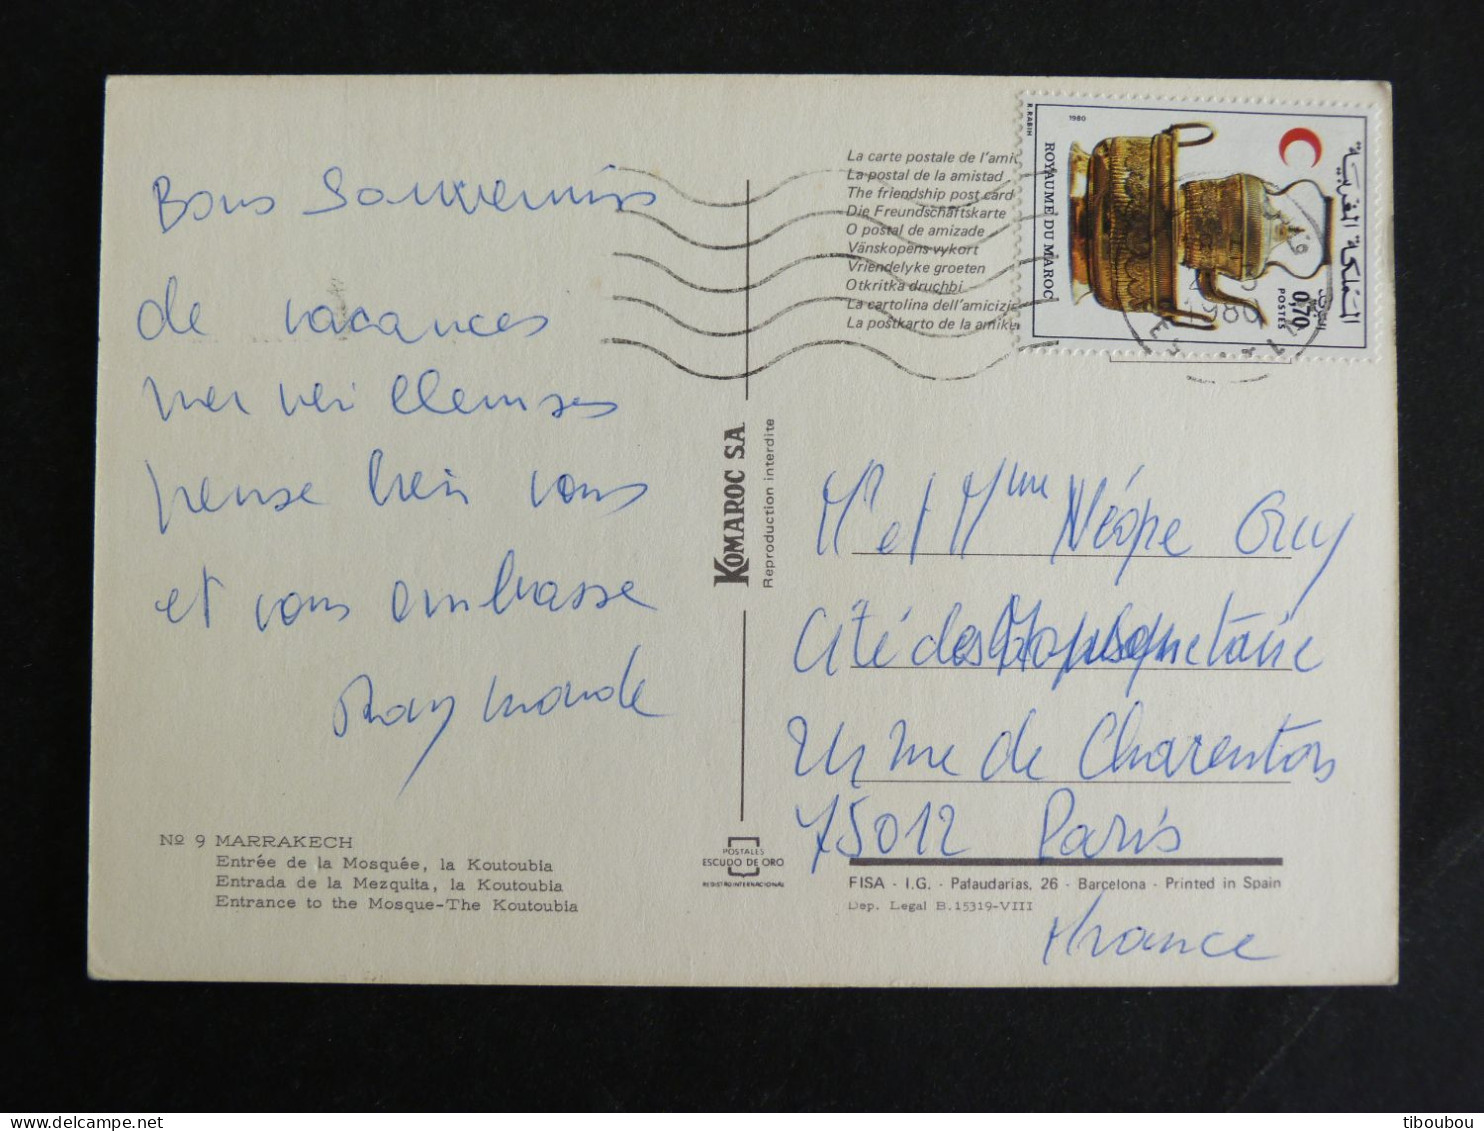 Bons Souvenirs
de vacances
merveilleuses
pense bien vous
et vous embrasse
Raymonde
Nº 9 MARRAKECH
Entrée de la Mosquée, la Koutoubia
Entrada de la Mezquita, la Koutoubia
Entrance to the Mosque-The Koutoubia
KOMAROC S.A.
Reproduction interdite
POSTALES
ESCUDO DE ORO
REGISTRO INTERNACIONAL
La carte postale de l'ami
La postal de la amistad
The friendship post card
Die Freundschaftskarte
O postal de amizade
Vänskopens vykort
Vriendelyke groeten
Otkritka druchbi
La cartolina dell'amicizi
La postkarto de la amike
R.RABIH
1980
ROYAUME DU MAROC
المملكة المغربية
البريد
0,70
POSTES
1980
Mr et Mme Népe Guy
Cité des
rue de Charenton
75012 Paris
FISA - I.G. - Palaudarias, 26 - Barcelona - Printed in Spain
Dep. Legal B.15319-VIII
France
tiboubou